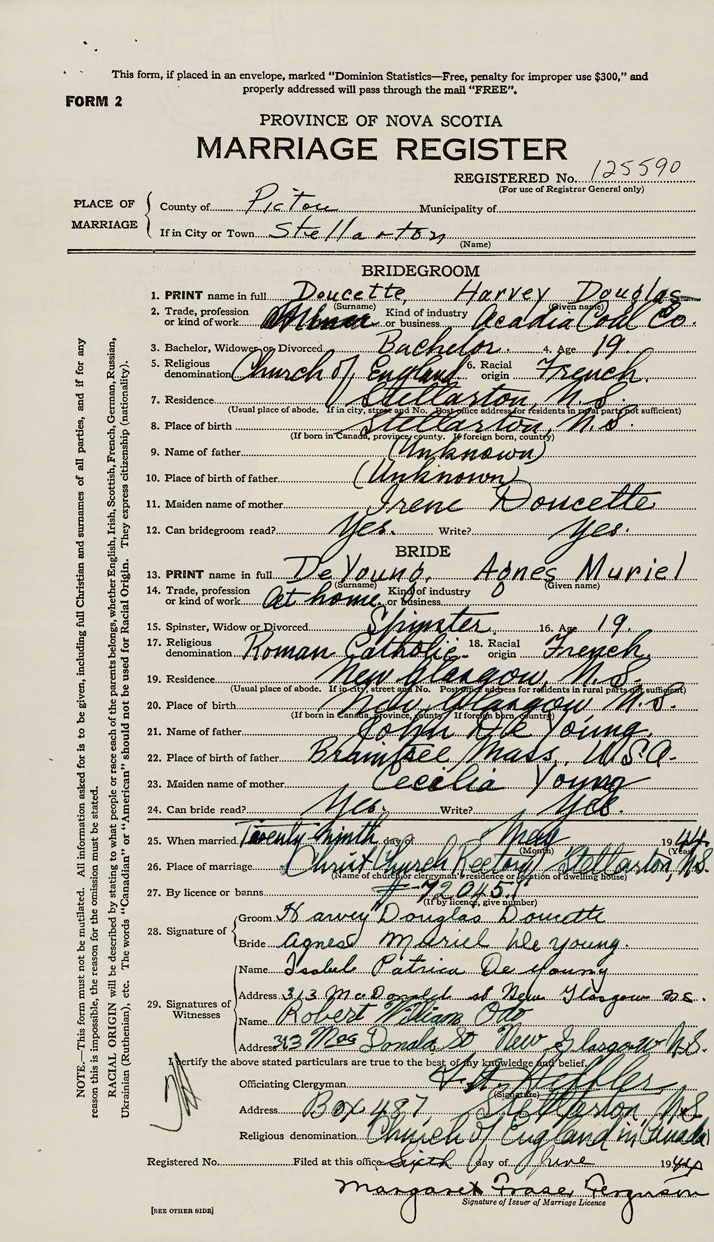 This form, if placed in an envelope, marked "Dominion Statistics—Free, penalty for improper use $300," and
properly addressed will pass through the mail "FREE".
FORM 2
PROVINCE OF NOVA SCOTIA
MARRIAGE REGISTER
REGISTERED No. 125590
(For use of Registrar General only)
PLACE OF MARRIAGE
County of Pictou Municipality of
If in City or Town Stellarton
(Name)
BRIDEGROOM
1. PRINT name in full Doucette, Harvey Douglas
(Surname) (Given name)
2. Trade, profession or kind of work Miner Kind of industry or business Acadia Coal Co.
3. Bachelor, Widower or Divorced Bachelor. 4. Age 19.
5. Religious denomination Church of England 6. Racial origin French.
7. Residence Stellarton, N.S.
(Usual place of abode. If in city, street and No. Post office address for residents in rural parts not sufficient)
8. Place of birth Stellarton, N.S.
(If born in Canada, province, county. If foreign born, country)
9. Name of father (Unknown)
10. Place of birth of father (Unknown)
11. Maiden name of mother Irene Doucette
12. Can bridegroom read? Yes. Write? Yes.
BRIDE
13. PRINT name in full DeYoung, Agnes Muriel
(Surname) (Given name)
14. Trade, profession or kind of work At home. Kind of industry or business
15. Spinster, Widow or Divorced Spinster. 16. Age 19.
17. Religious denomination Roman Catholic. 18. Racial origin French.
19. Residence New Glasgow, N.S.
(Usual place of abode. If in city, street and No. Post office address for residents in rural parts not sufficient)
20. Place of birth New Glasgow N.S.
(If born in Canada, province, county. If foreign born, country)
21. Name of father John De Young.
22. Place of birth of father Braintree, Mass., U.S.A.
23. Maiden name of mother Cecilia Young
24. Can bride read? Yes. Write? Yes.
25. When married Twenty ninth day of May 1944
(Month) (Year)
26. Place of marriage Christ Church Rectory Stellarton, N.S.
(Name of church or clergyman's residence or location of dwelling house)
27. By licence or banns # 72045
(If by licence, give number)
28. Signature of
Groom Harvey Douglas Doucette
Bride Agnes Muriel De Young.
29. Signatures of Witnesses
Name Isabel Patrica De Young
Address 313 McDonald st New Glasgow N.S.
Name Robert William
Address 313 MacDonald St New Glasgow N.S.
I certify the above stated particulars are true to the best of my knowledge and belief.
Officiating Clergyman
(Signature)
Address Box 487 Stellarton, N.S.
Religious denomination Church of England in Canada
Registered No. Filed at this office Sixth day of June 1944
Margaret Fraser Ferguson
Signature of Issuer of Marriage Licence
[SEE OTHER SIDE]
NOTE.—This form must not be mutilated. All information asked for is to be given, including full Christian and surnames of all parties, and if for any
reason this is impossible, the reason for the omission must be stated.
RACIAL ORIGIN will be described by stating to what people or race each of the parents belongs, whether English, Irish, Scottish, French, German, Russian,
Ukrainian (Ruthenian), etc. The words "Canadian" or "American" should not be used for Racial Origin. They express citizenship (nationality).